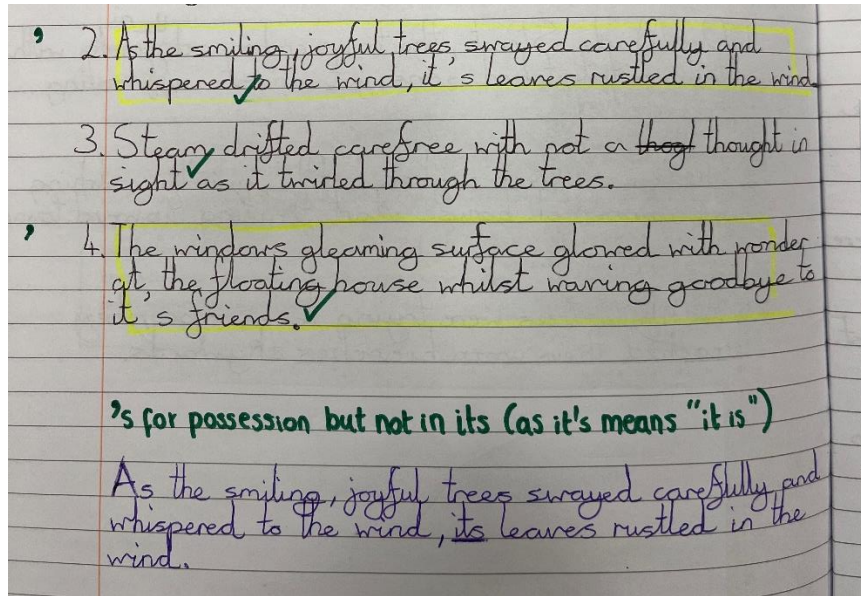 , 2. As the smiling, joyful trees swayed carefully and
whispered to the wind, it's leaves rustled in the wind.
3. Steam drifted carefree with not a thogt thought in
sight as it twirled through the trees.
, 4. The windows gleaming surface glowed with wonder
at the floating house whilst waving goodbye to
it's friends.
's for possession but not in its (as it's means "it is")
As the smiling, joyful trees swayed carefully and
whispered to the wind, its leaves rustled in the
wind.